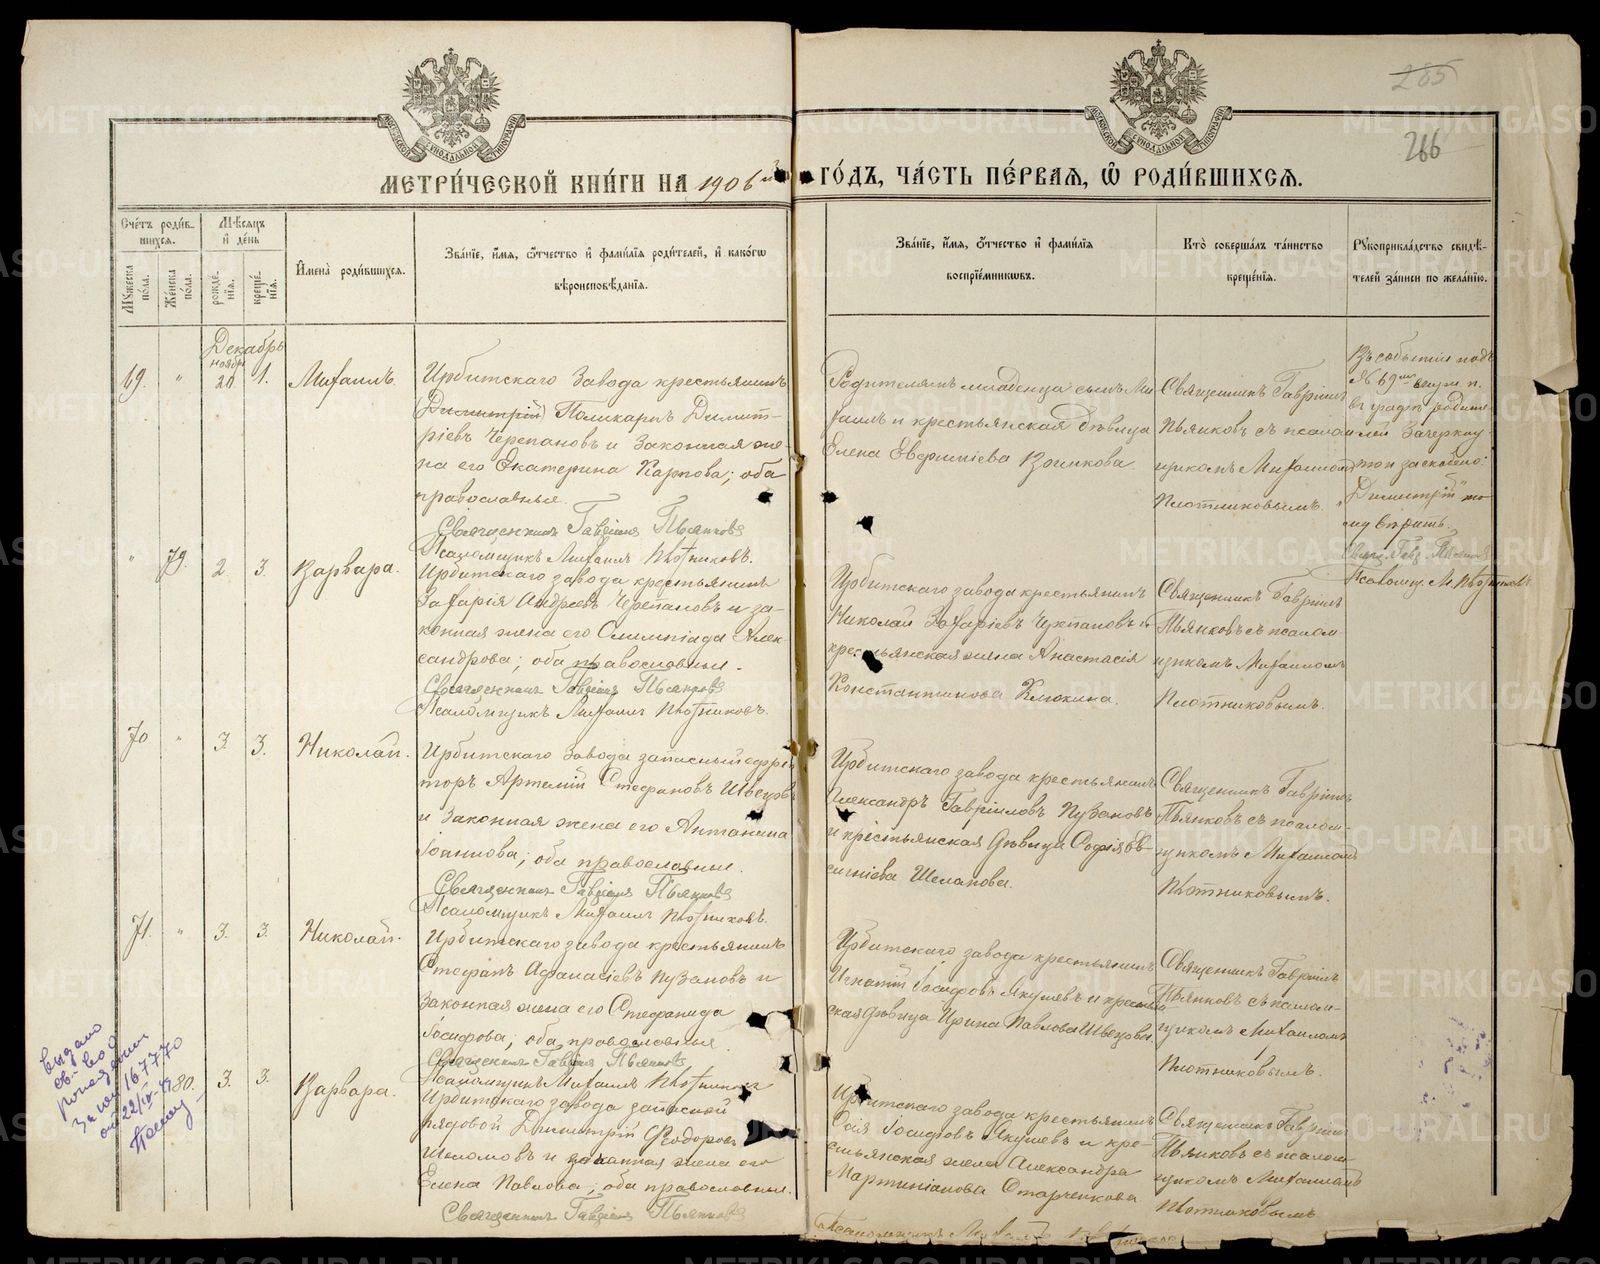 285
266
МЕТРИ́ЧЕСКОЙ КНИ́ГИ НА 1906 й ГО́ДЪ, ЧА́СТЬ ПЕ́РВАЯ, Ѿ РОДИ́ВШИХСЯ.
Сче́тъ роди́в-
шихся.
Му́жеска по́ла.
Же́нска по́ла.
Мѣ́сяцъ
и҆ де́нь
рожде́-
нїя.
креще́-
нїя.
И҆мена̀ роди́вшихся.
Зва́нїе, и҆́мя, ѻ҆́тчество и҆ фамі́лїя роди́телей, и҆ како́гѡ
вѣроисповѣ́данїя.
Зва́нїе, и҆́мя, ѻ҆́тчество и҆ фамі́лїя
воспрїе́мникѡвъ.
Кто̀ соверша́лъ та́инство
креще́нїя.
Рꙋкоприкла́дство свидѣ́-
телей за́писи по жела́нїю.
Декабрь
69. " ноября 20 1. Михаилъ.
Ирбитскаго Завода крестьянинъ
(Димитрій) Поликарпъ Димит-
ріевъ Черепановъ и Законная же-
на его Екатерина Карпова; оба
православные.
Священникъ Гавріилъ Пьянковъ
Псаломщикъ Михаилъ Плотниковъ.
Родителямъ младенца сынъ Ми-
хаилъ и крестьянская дѣвица
Елена
Воинкова.
Священникъ Гавріилъ
Пьянковъ съ псалом-
щикомъ Михаиломъ
Плотниковымъ.
Въ событіи подъ
№ 69мъ
въ графѣ родите-
лей Зачеркну-
тои заскоблено:
"Димитрій" то-
му вѣрить.
Свящ. Гавр. Пьянковъ
Псаломщ. М. Плотниковъ
" 79. 2. 3. Варвара.
Ирбитскаго завода крестьянинъ
Захарія Андреевъ Черепановъ и за-
конная жена его Олимпіада Алек-
сандрова; оба православные.
Священникъ Гавріилъ Пьянковъ
Псаломщикъ Михаилъ Плотниковъ.
Ирбитскаго завода крестьянинъ
Николай Захаріевъ Черепановъ и
крестьянская жена Анастасія
Константинова Клюкина.
Священникъ Гавріилъ
Пьянковъ съ псалом-
щикомъ Михаиломъ
Плотниковымъ.
70 " 3. 3. Николай.
Ирбитскаго Завода запасный ефрей-
торъ Артемій Стефановъ Швецовъ
и Законная жена его Антонина
Іоаннова; оба православные.
Священникъ Гавріилъ Пьянковъ
Псаломщикъ Михаилъ Плотниковъ.
Ирбитскаго завода крестьянинъ
Александръ Гавріиловъ Пузановъ
и крестьянская дѣвица Софія Ев-
сигніева Шелапова.
Священникъ Гавріилъ
Пьянковъ съ псалом-
щикомъ Михаиломъ
Плотниковымъ.
71. " 3. 3. Николай.
Ирбитскаго завода крестьянинъ
Стефанъ Афанасіевъ Пузановъ и
Законная жена его Стефанида
Іосифова; оба православные.
Священникъ Гавріилъ Пьянковъ
Псаломщикъ Михаилъ Плотниковъ
Ирбитскаго завода крестьянинъ
Игнатій Іосифовъ Якушевъ и крестьян-
ская дѣвица Ирина Павлова Швецова.
Священникъ Гавріилъ
Пьянковъ съ псалом-
щикомъ Михаиломъ
Плотниковымъ.
Выдано
св-во о
рождении
за № 167770
от 22/IV-49
80. 3. 3. Варвара.
Ирбитскаго завода запасной
рядовой Димитрій Ѳеодоровъ
Шеломовъ и законная жена его
Елена Павлова; оба православные.
Священникъ Гавріилъ Пьянковъ
Псаломщикъ Михаилъ Плотниковъ
Ирбитскаго завода крестьянинъ
Іосифовъ Якушевъ и кре-
стьянская жена Александра
Мартиніанова Старченкова
Священникъ Гавріилъ
Пьянковъ съ псалом-
щикомъ Михаиломъ
Плотниковымъ